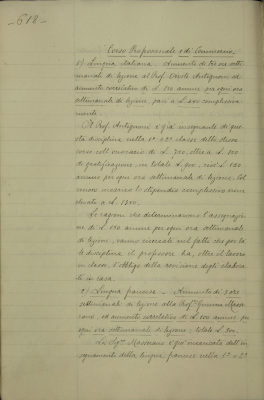 - 618 -
Corso Professionale e di Commercio.
1) Lingua Italiana. Aumento di tre ore setti-
manali di lezione al Prof. Oreste Antignani ed
aumento correlativo di L. 150 annue per ogni ora
settimanale di lezione, pari a L. 450 complessiva-
mente.
Il Prof. Antignani è già insegnante di que-
sta disciplina nella 1ª e 2ª classe delle
corso coll'onorario di L. 700, oltre a L. 200
di gratificazione, in totale L. 900, cioè L. 150
annue per ogni ora settimanale di lezione. Col
nuovo incarico lo stipendio complessivo viene
elevato a L. 1350.
Le ragioni che determinarono l'assegnazio-
ne di L. 150 annue per ogni ora settimanale
di lezione, vanno ricercate nel fatto che per ta-
le disciplina il professore ha, oltre il lavoro
in classe, l'obbligo della revisione degli elabora-
ti in casa.
2) Lingua francese - Aumento di 3 ore
settimanali di lezione alla Prof.ssa Gemma
ed aumento correlativo di L. 100 annue per
ogni ora settimanale di lezione; totale L. 300.
La Sig.na è già incaricata dell'in-
segnamento della lingua francese nella 1ª e 2ª